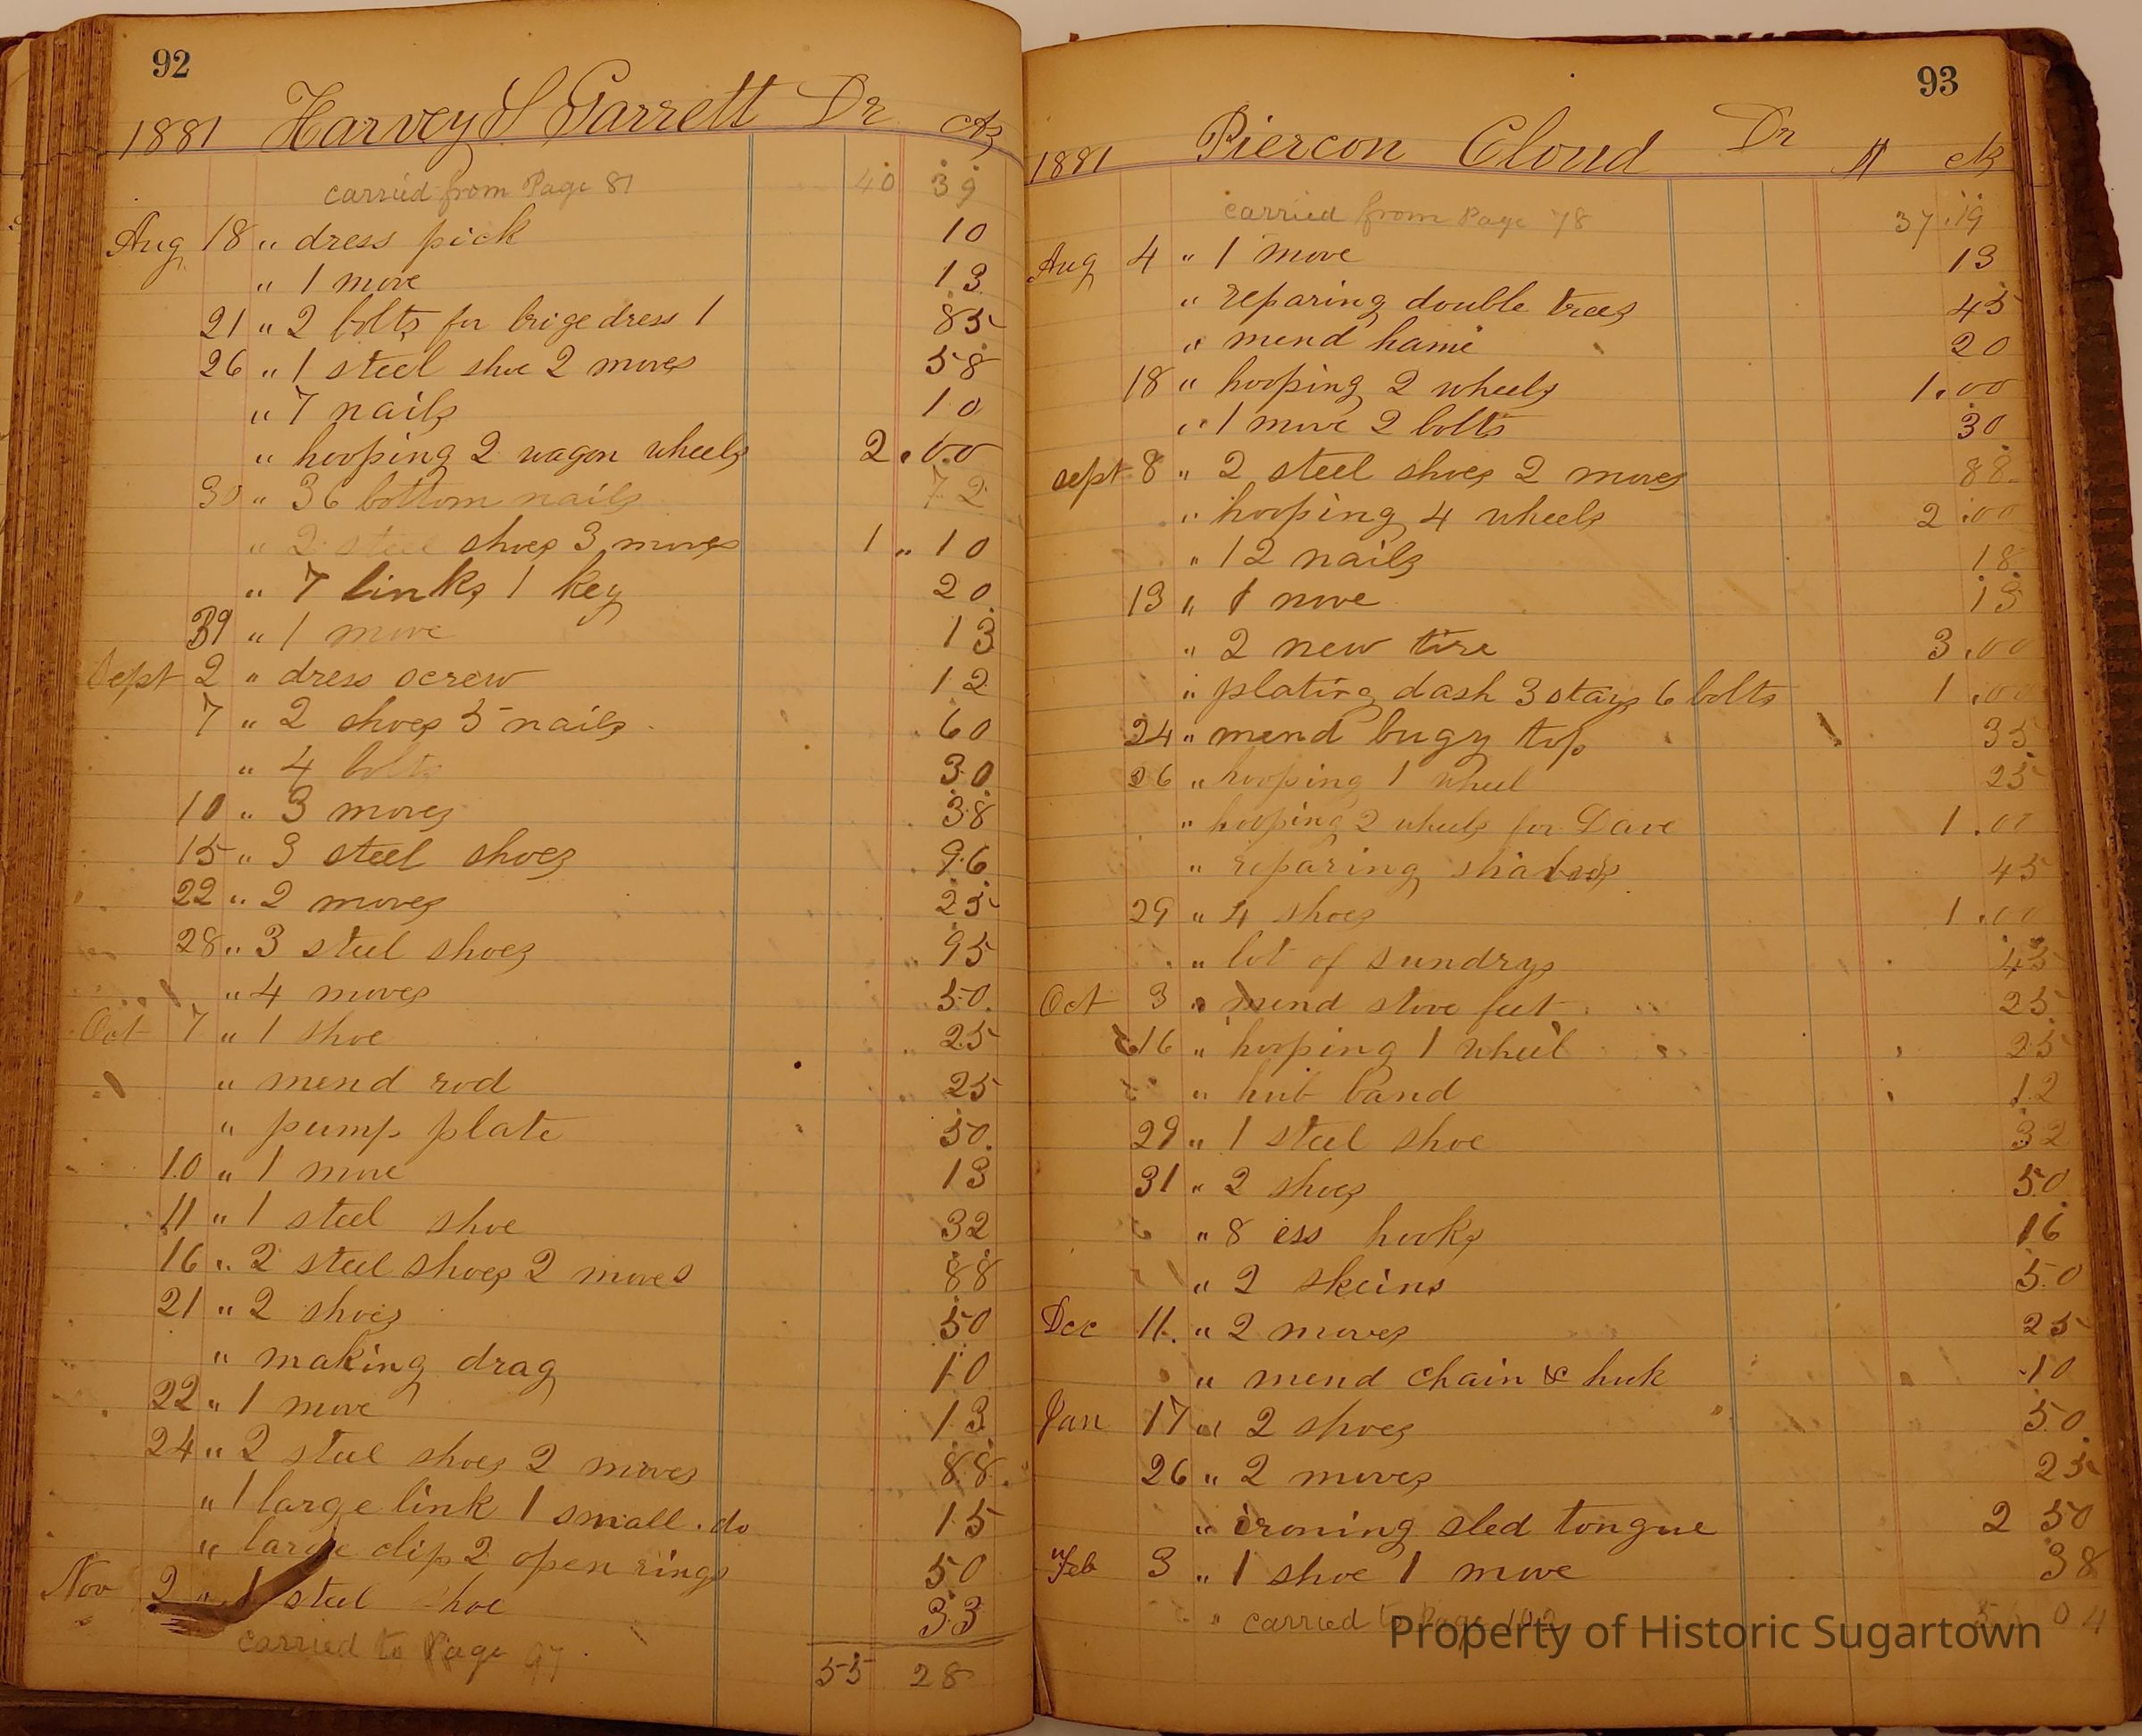 92
1881 Harvey S Garrett Dr cts
carried from Page 81 40 39
Aug 18 " dress pick 10
" 1 move 13
21 " 2 bolts for brige dress 1 85
26 " 1 steel shoe 2 moves 58
" 7 nails 10
" hooping 2 wagon wheels 2.00
30 " 36 bottom nails 72
" 2 steel shoes 3 moves 1 " 10
" 7 links 1 key 20
" 1 move 13
Sept 2 " dress screw 12
7 " 2 shoes 5 nails 60
" 4 bolts 30
10 " 3 moves 38
15 " 3 steel shoes 96
22 " 2 moves 25
28 " 3 steel shoes 95
" 4 moves 50
Oct 7 " 1 shoe 25
" mend rod 25
" pump plate 50
10 " 1 move 13
11 " 1 steel shoe 32
16 " 2 steel shoes 2 moves 88
21 " 2 shoes 50
" making drag 10
22 " 1 move 13
24 " 2 steel shoes 2 moves 88
" 1 large link 1 small do 15
" large clip 2 open rings 50
Nov 2 " 1 steel shoe 33
carried to Page 97
55 28
93
1881 Piercon Cloud Dr $ cts
carried from Page 78 37.19
Aug 4 " 1 move 13
" reparing double trees 45
" mend hame 20
18 " hooping 2 wheels 1.00
" 1 move 2 bolts 30
sept 8 " 2 steel shoes 2 moves 88
" hooping 4 wheels 2.00
" 12 nails 18
13 " 1 move 13
" 2 new tire 3.00
" plating dash 3 stays 6 bolts 1.00
24 " mend bugy top 35
26 " hooping 1 wheel 25
" hooping 2 wheels for Dave 1.00
" reparing 45
29 " 4 shoes 1.00
" lot of sundrys 45
Oct 3 " mend stove feet 25
16 " hooping 1 wheel 25
" hub band 12
29 " 1 steel shoe 32
31 " 2 shoes 50
" 8 ess hooks 16
" 2 skeins 50
Dec 11. " 2 moves 25
" mend chain & hook 10
Jan 17 " 2 shoes 50
26 " 2 moves 25
" ironing sled tongue 2 50
Feb 3 " 1 shoe 1 move 38
" carried to Page 102 04
Property of Historic Sugartown